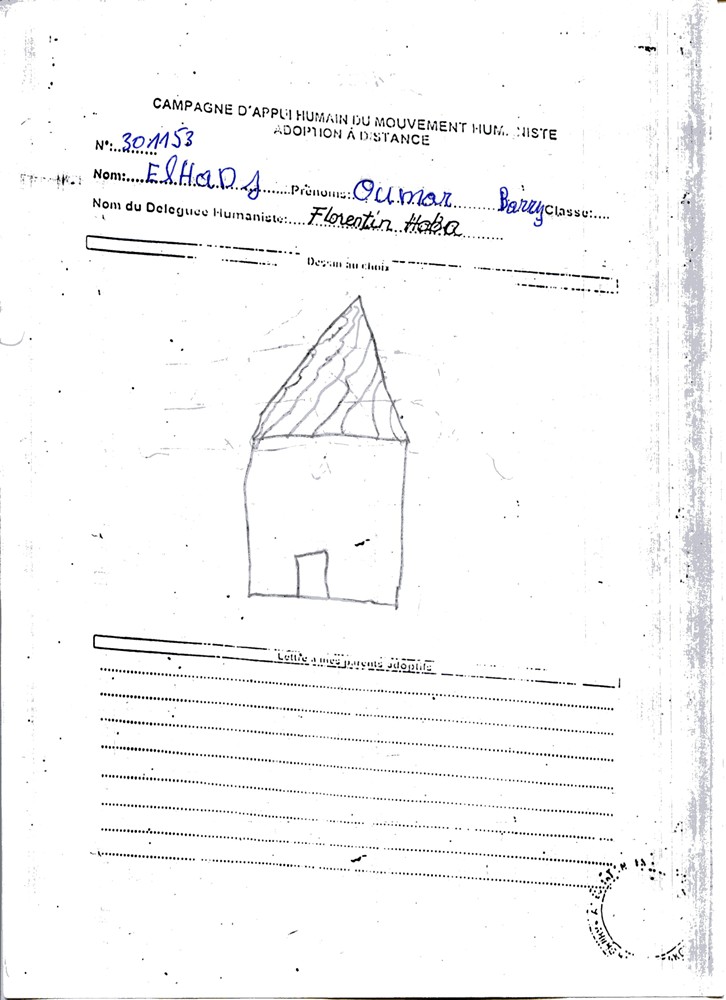 CAMPAGNE D'APPUI HUMAIN DU MOUVEMENT HUM. NISTE
ADOPTION À DISTANCE
N°:..301153
Nom:....ElHaDj..........Prénoms:.Oumar.......... Barry Classe:....
Nom du Deleguee Humaniste:....Florentin Haba..........
Dessin au choix
Lettre a mes parents adoptifs